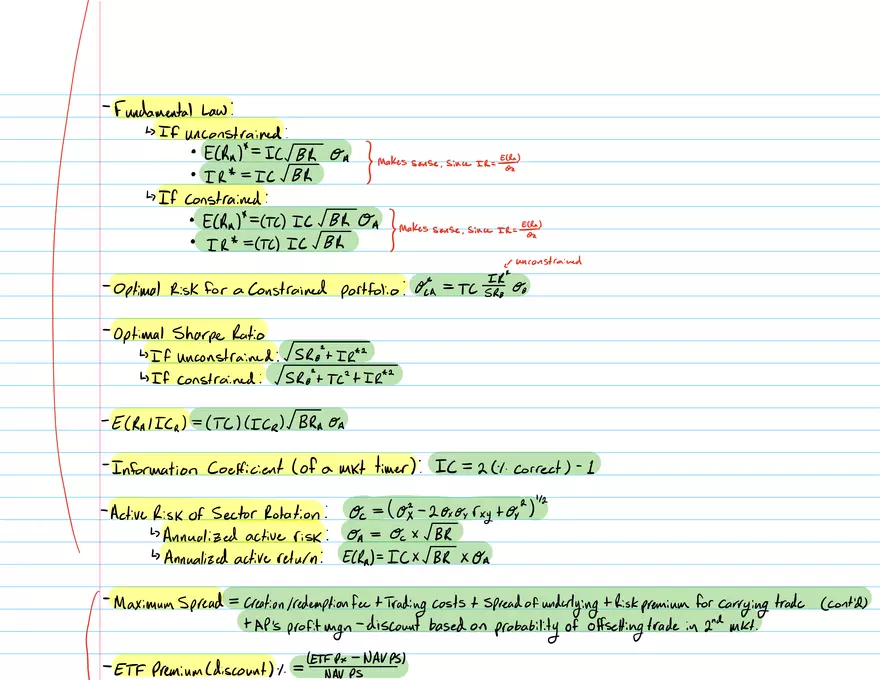 - Fundamental Law:
↳ If unconstrained:
• E(R_A)* = IC√BR σ_A
• IR* = IC√BR
Makes sense, since IR = E(R_A)/σ_A
↳ If constrained:
• E(R_A)* = (TC) IC √BR σ_A
• IR* = (TC) IC √BR
Makes sense, since IR = E(R_A)/σ_A
↙ unconstrained
- Optimal Risk for a Constrained portfolio: σ*_CA = TC IR*/SR_B σ_B
- Optimal Sharpe Ratio
↳ If unconstrained: √SR_B² + IR*²
↳ If constrained: √SR_B² + TC² + IR*²
- E(R_A|IC_R) = (TC)(IC_R)√BR_A σ_A
- Information Coefficient (of a mkt timer): IC = 2(% correct) - 1
- Active Risk of Sector Rotation: σ_C = (σ_X² - 2σ_Xσ_Y r_XY + σ_Y²)^1/2
↳ Annualized active risk: σ_A = σ_C × √BR
↳ Annualized active return: E(R_A) = IC × √BR × σ_A
- Maximum Spread = Creation/redemption fee + Trading costs + Spread of underlying + Risk premium for carrying trade (cont'd)
+ AP's profit mgn - discount based on probability of offsetting trade in 2nd mkt.
- ETF Premium (discount) % = (ETF Px - NAV PS)/NAV PS